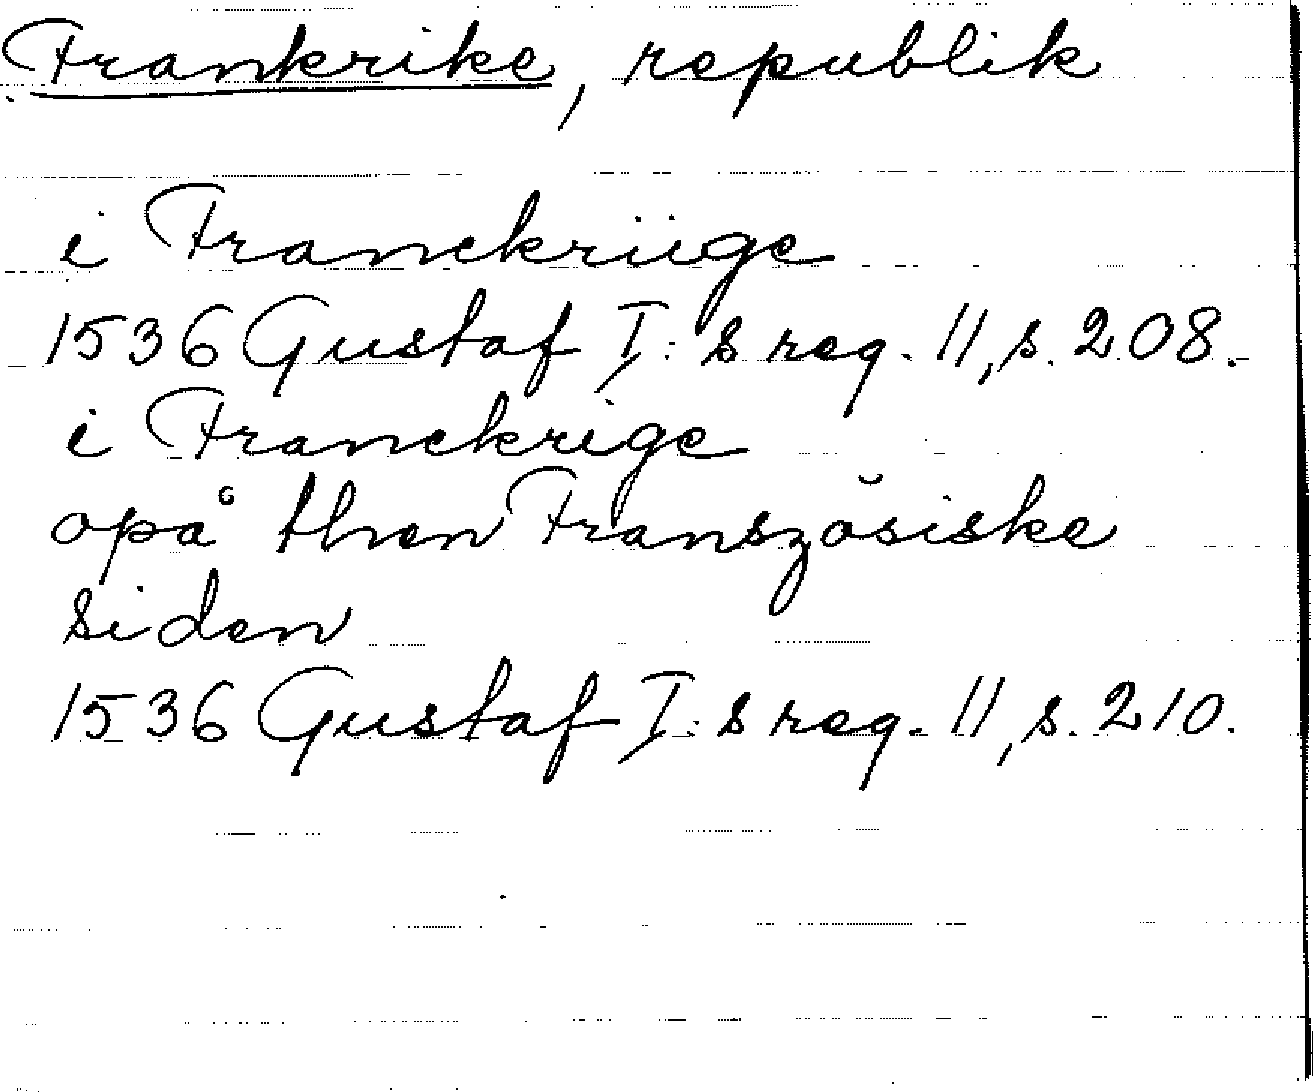 Frankrike, republik
i Franckriige
1536 Gustaf I:s reg. 11, s. 208.
i Franckrige
opå then Franszösiske
siden
1536 Gustaf I:s reg. 11, s. 210.